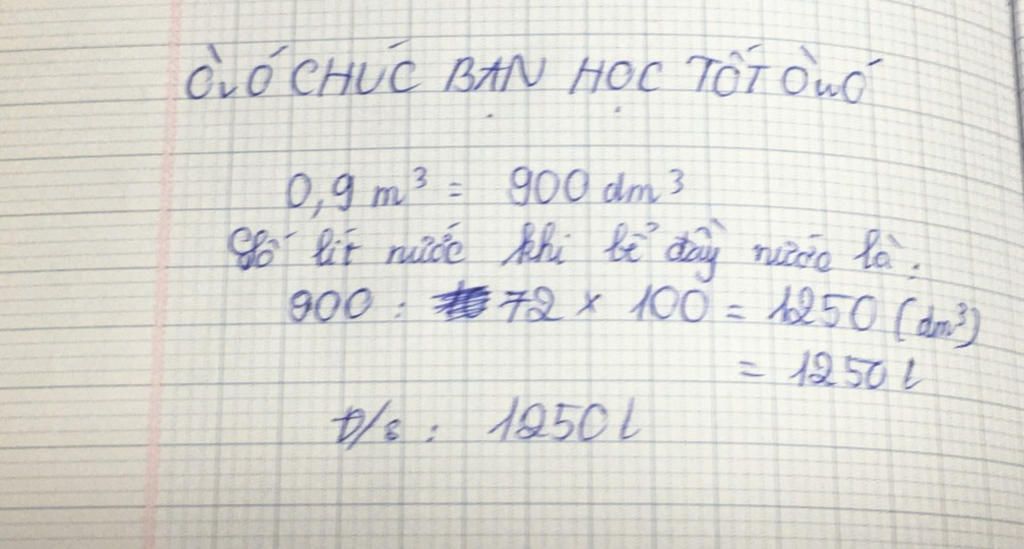 ÒuÓ CHÚC BẠN HỌC TỐT ÒuÓ
0,9 m³ = 900 dm³
Số lít nước khi bể đầy nước là:
900 : 72 × 100 = 1250 (dm³)
= 1250 l
Đ/s : 1250 l